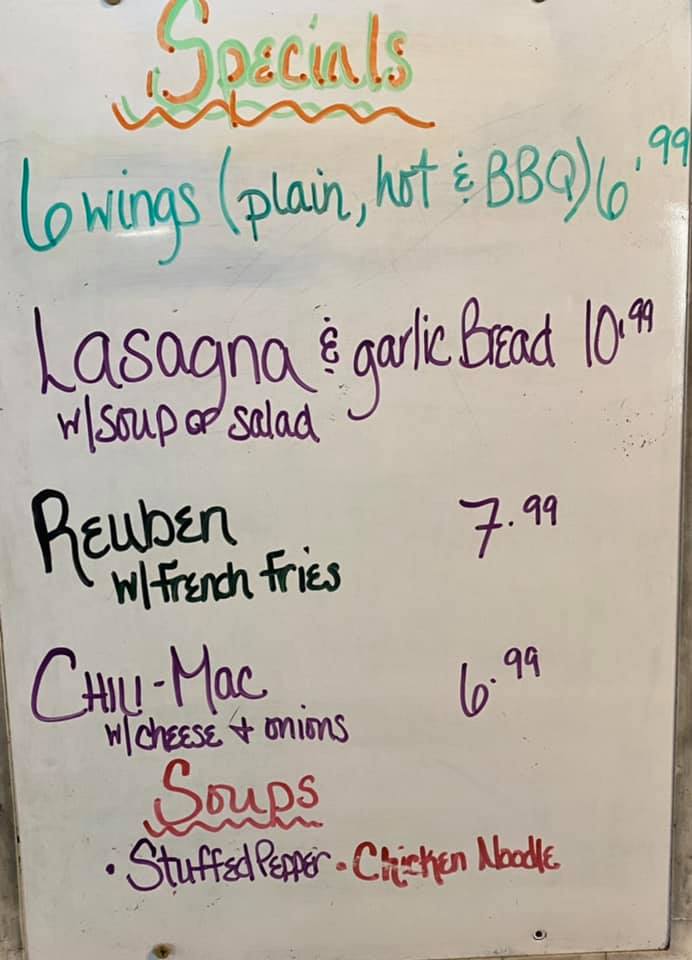 Specials
6 wings (plain, hot & BBQ) 6.99
Lasagna & garlic Bread 10.99
w/soup or salad
Reuben 7.99
w/French Fries
Chili-Mac 6.99
w/cheese + onions
Soups
• Stuffed Pepper • Chicken Noodle